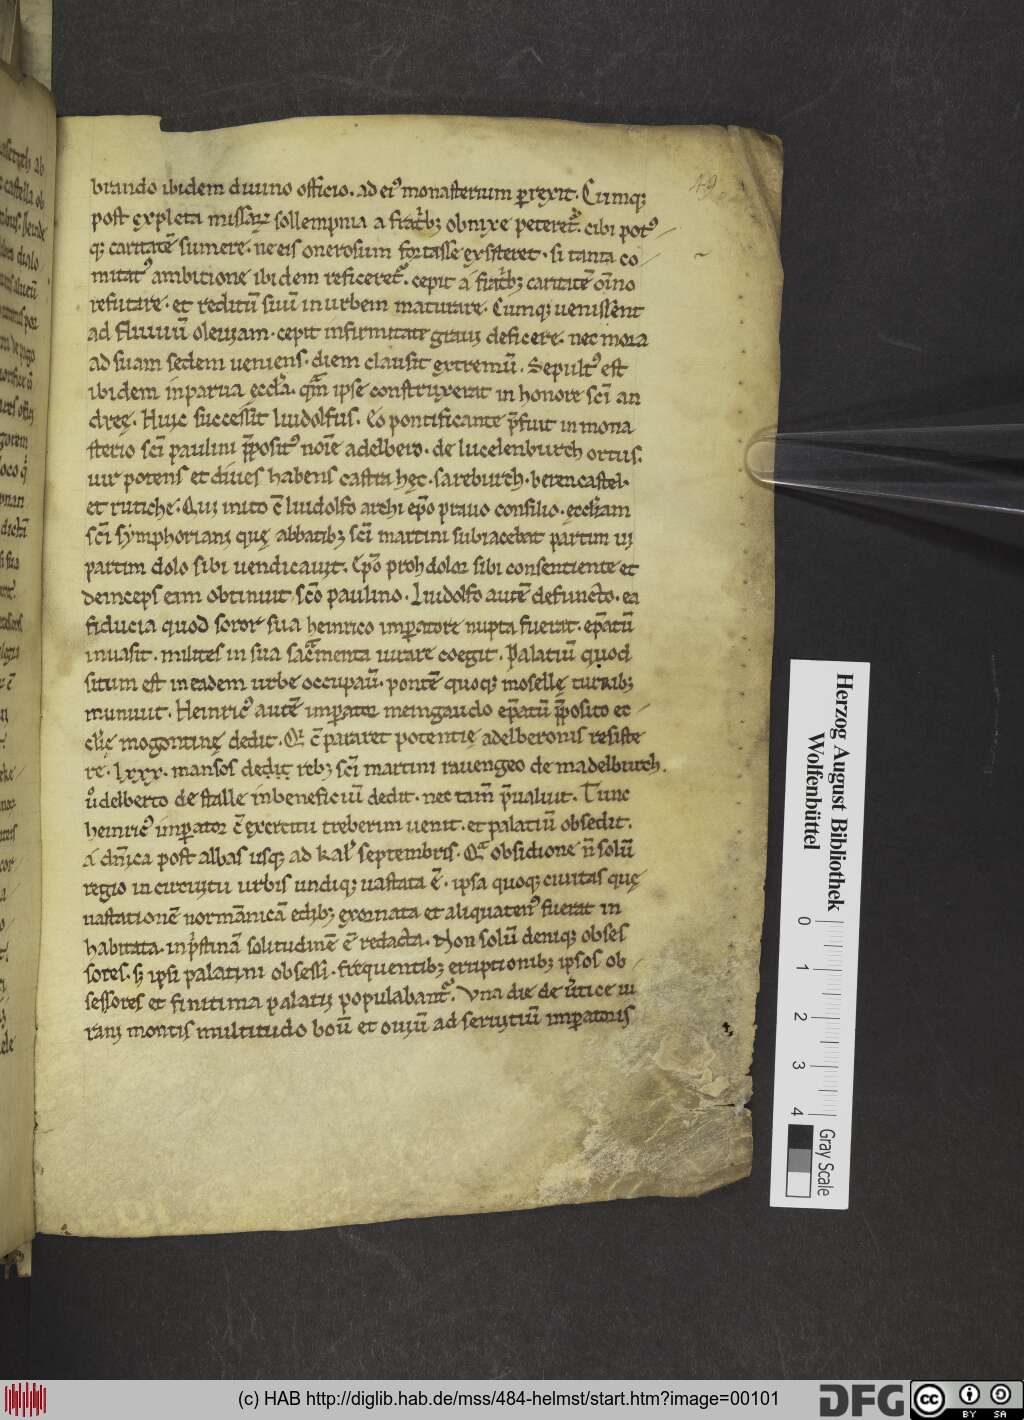 49
brando ibidem diuino officio. ad ei᷒ monasterium p̲rexit. Cumq;
post expleta missaꝝ sollempnia a fr̄ib; obnixe peteret᷒. cibi pot᷒
q; caritatē sumere. ne eis onerosum fortasse exsisteret. si tanta co
mitat᷒ ambitione ibidem reficeret᷒. cepit a fr̄ib; caritatē om̄o
refutare. et reditū suū in urbem maturare. Cumq; uenissent
ad fluuiū olewam. cepit infirmitate graui deficere. nec mora
ad suam sedem ueniens. diem clausit extremū. Sepult᷒ est
ibidem in parua ęccl̄a. quā ipse construxerat in honore sc̄i an
dreę. Huic successit liudolfus. Eo pontificante p̄fuit in mona
sterio sc̄i paulini p̄posit᷒ noīe adelbero. de lucelenburch ortus.
uir potens et diues habens castra hęc. sareburch. berencastel.
et rutiche. Qui inito c̄ liudolfo archiep̄o prauo consilio. ęccl̄iam
sc̄i symphoriani quę abbatib; sc̄i martini subiacebat partim ui
partim dolo sibi uendicauit. Ep̄o proh dolor sibi consentiente et
deinceps eam obtinuit sc̄o paulino. Liudolfo autē defuncto. ea
fiducia quod soror sua heinrico imp̲atore nupta fuerat. ep̄atū
inuasit. milites in sua sacramenta iurare coegit. Palatiū quod
situm est in eadem urbe occupau̅. pontē quoq; mosellę turrib;
muniuit. Heinric᷒ autē imp̲ator meingaudo ep̄atū p̄posito et
cl̄ic̨ę mogontinę dedit. Q, c̄ pararet potentię adelberonis resiste
re. Lxxx. mansos dedit reb; sc̄i martini rauengeo de madelburch.
uͦdelberto de stalle in beneficiū dedit. nec tam̄ p̄ualuit. Tunc
heinric᷒ imp̲ator c̄ exercitu treberim uenit. et palatiū obsedit.
a dn̄ica post albas usq; ad kal̄ septembris. Qa obsidione n̄ solū
regio in circuitu urbis undiq; uastata ē. ipsa quoq; ciuitas quę
uastationē normānicā edib; exornata et aliquaten᷒ fuerat in
habitata. in p̄stinā solitudinē ē redacta. Non solū deniq; obses
sores. s; ipsi palatini obsessi. frequentib; eruptionib; ipsos ob
sessores et finitima palatii populabant᷒. Una die de u̅tice iu
rani montis multitudo boū et ouiū ad seruitiū imp̲atoris
Herzog August Bibliothek
Wolfenbüttel
0 1 2 3 4
Gray Scale
(c) HAB http://diglib.hab.de/mss/484-helmst/start.htm?image=00101
DFG
cc
BY SA